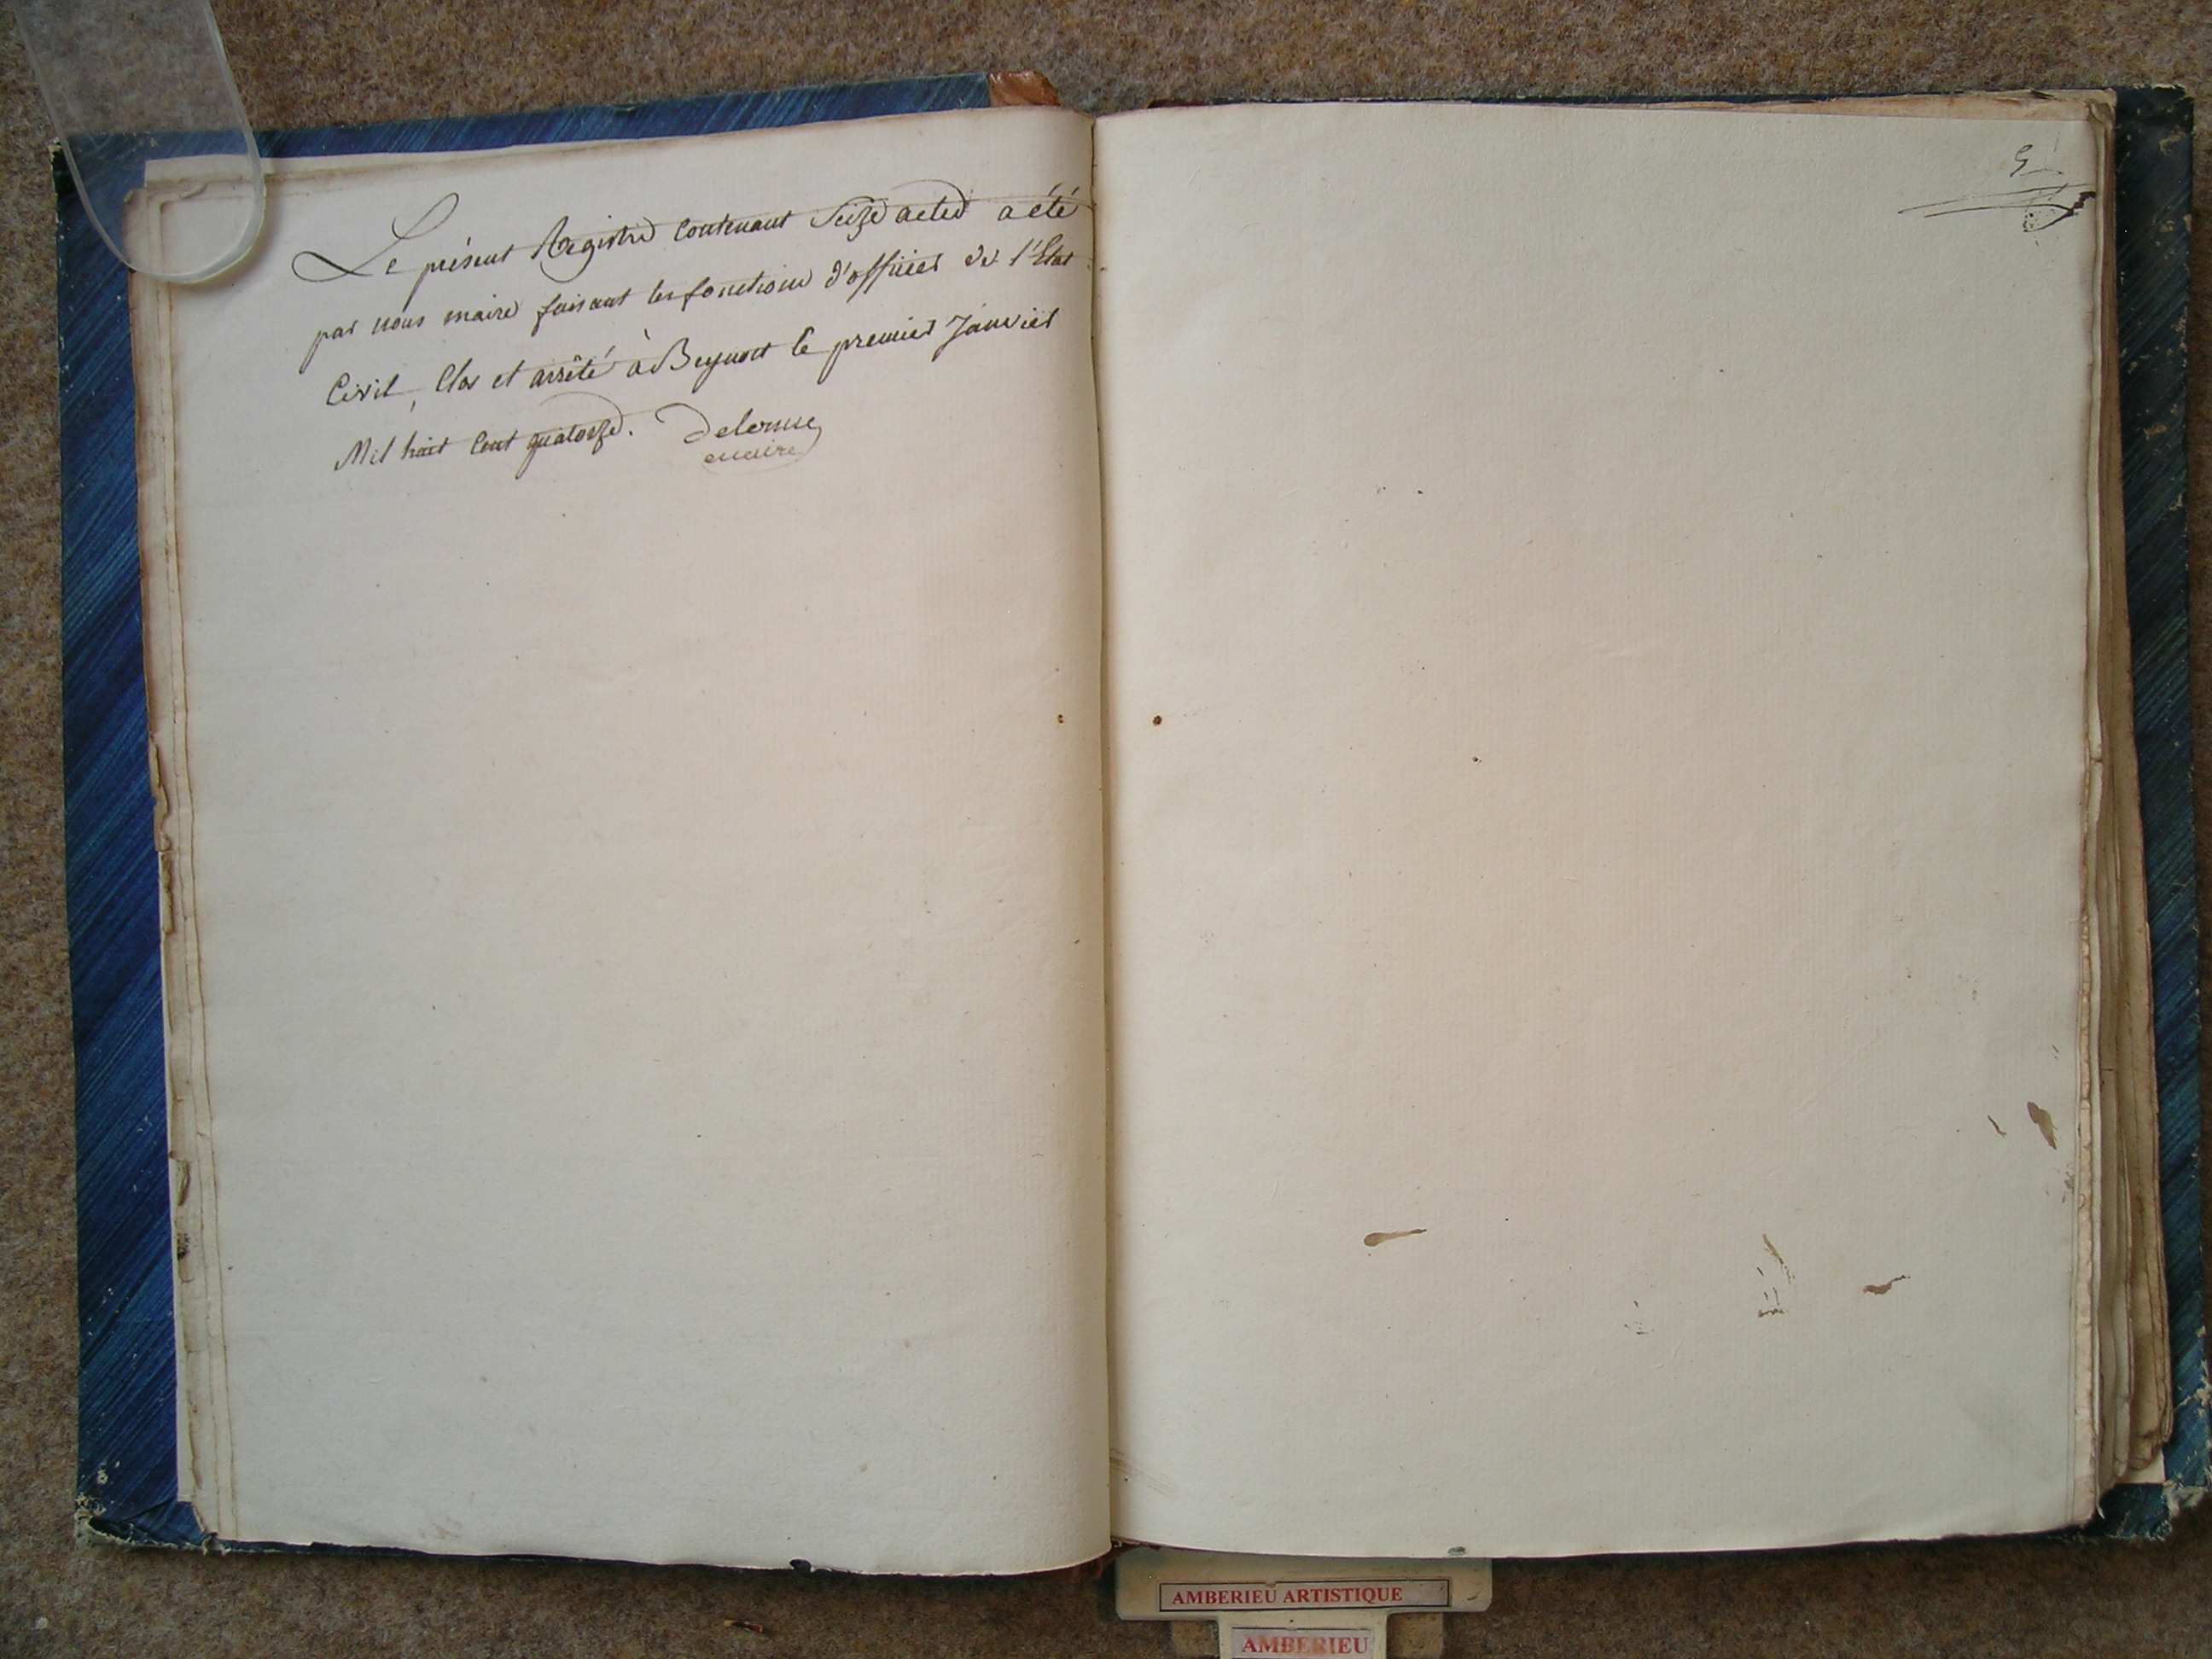 Le présent Registre Contenant Seize actes a été
par nous maire faisant les fonctions d'officier de l'Etat
Civil, Clos et arrêté à Beynost le premier Janvier
Mil huit Cent quatorze. Delorme
maire
5
AMBERIEU ARTISTIQUE
AMBERIEU